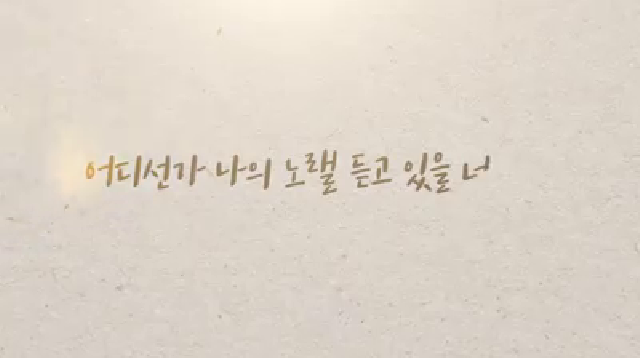 어디선가 나의 노랠 듣고 있을 너